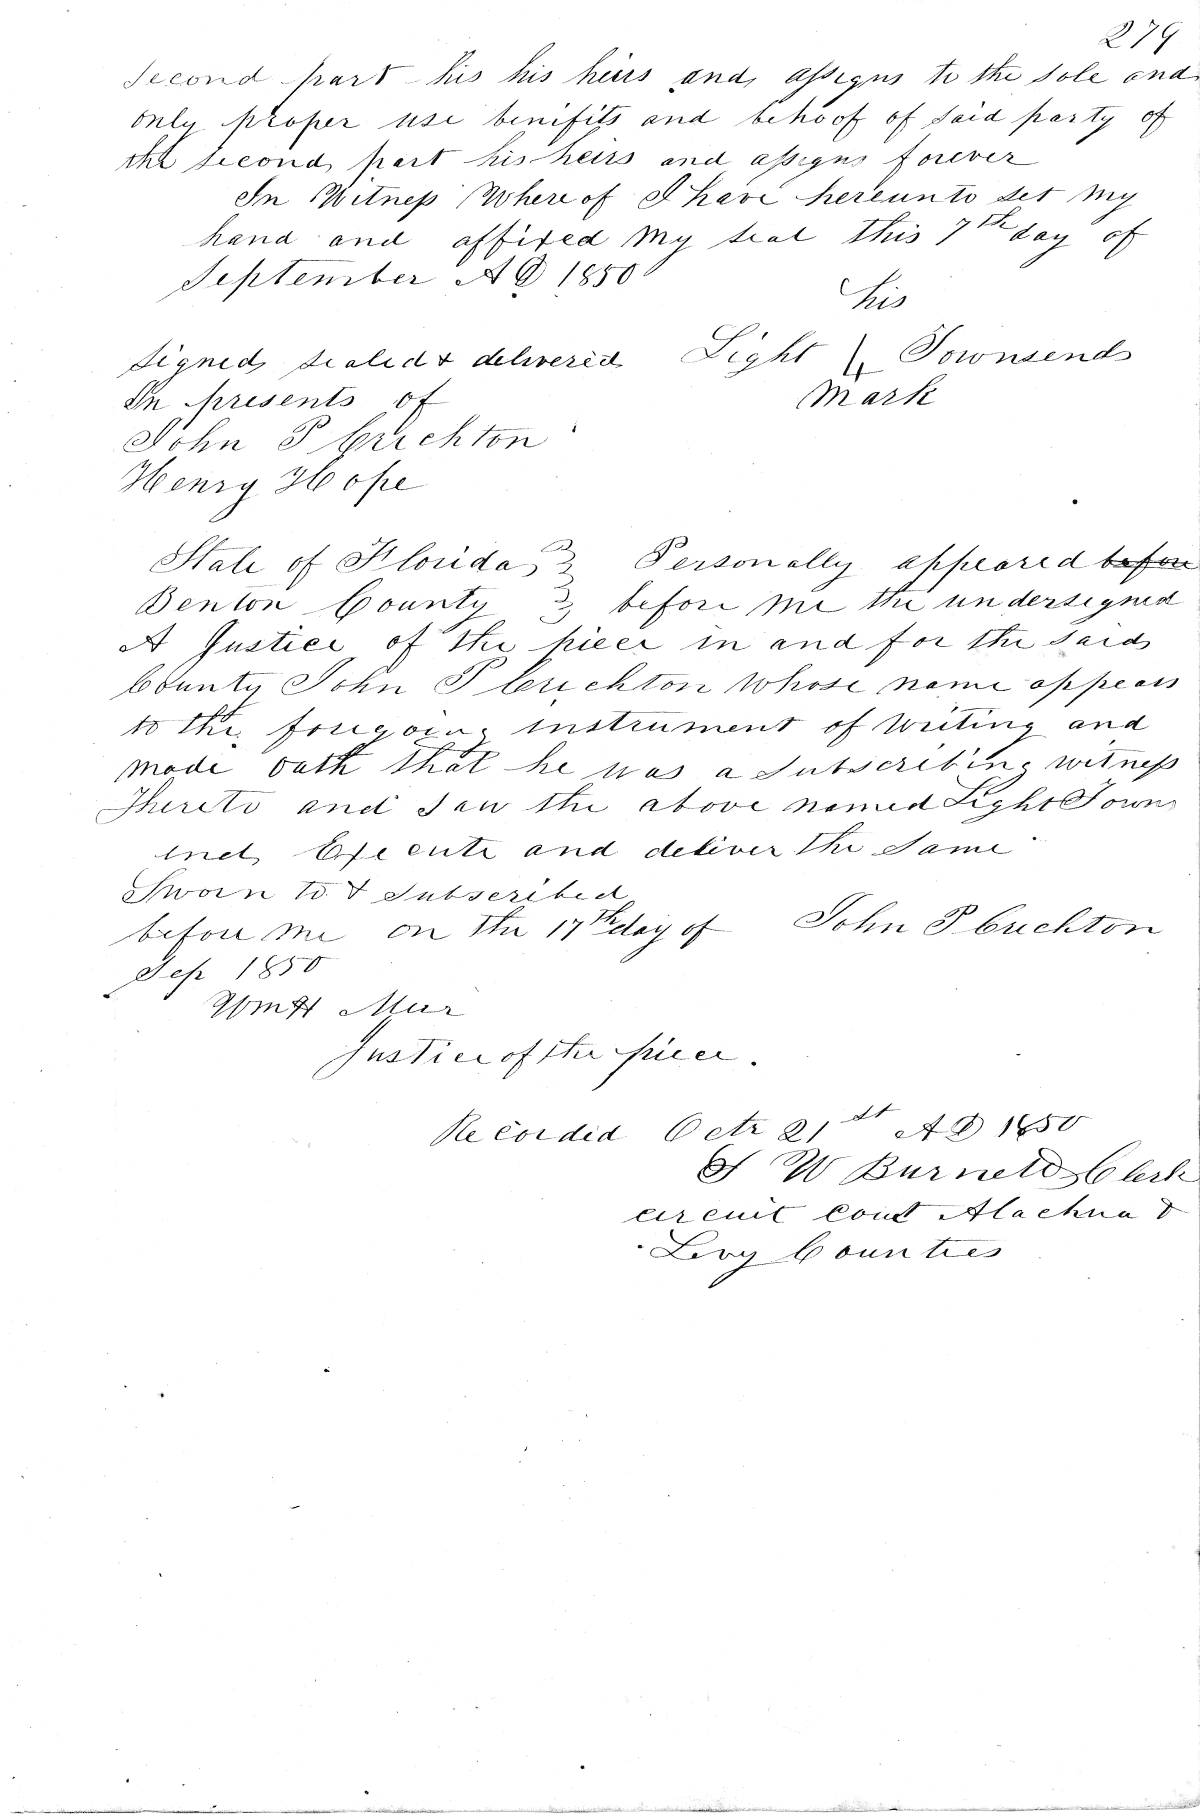 279
second part his his heirs and assigns to the sole and
only proper use benifits and behoof of said party of
the second part his heirs and assigns forever
In Witness Where of I have hereunto set my
hand and affixed my seal this 7th day of
September A D 1850
his
Signed sealed & delivered Light Townsend
In presents of mark
John P Crichton
Henry Hope
State of Florida } Personally appeared before
Benton County } before me the undersigned
A Justice of the piece in and for the said
County John P Crichton whose name appears
to the foregoing instrument of writing and
made oath that he was a subscribing witness
Thereto and saw the above named Light Towns
end Execute and deliver the same
Sworn to & subscribed
before me on the 17th day of John P Crichton
Sep 1850
Wm H
Justice of the piece.
Recorded Octr 21st A D 1850
W Burnett Clerk
circuit court Alachua &
Levy Counties